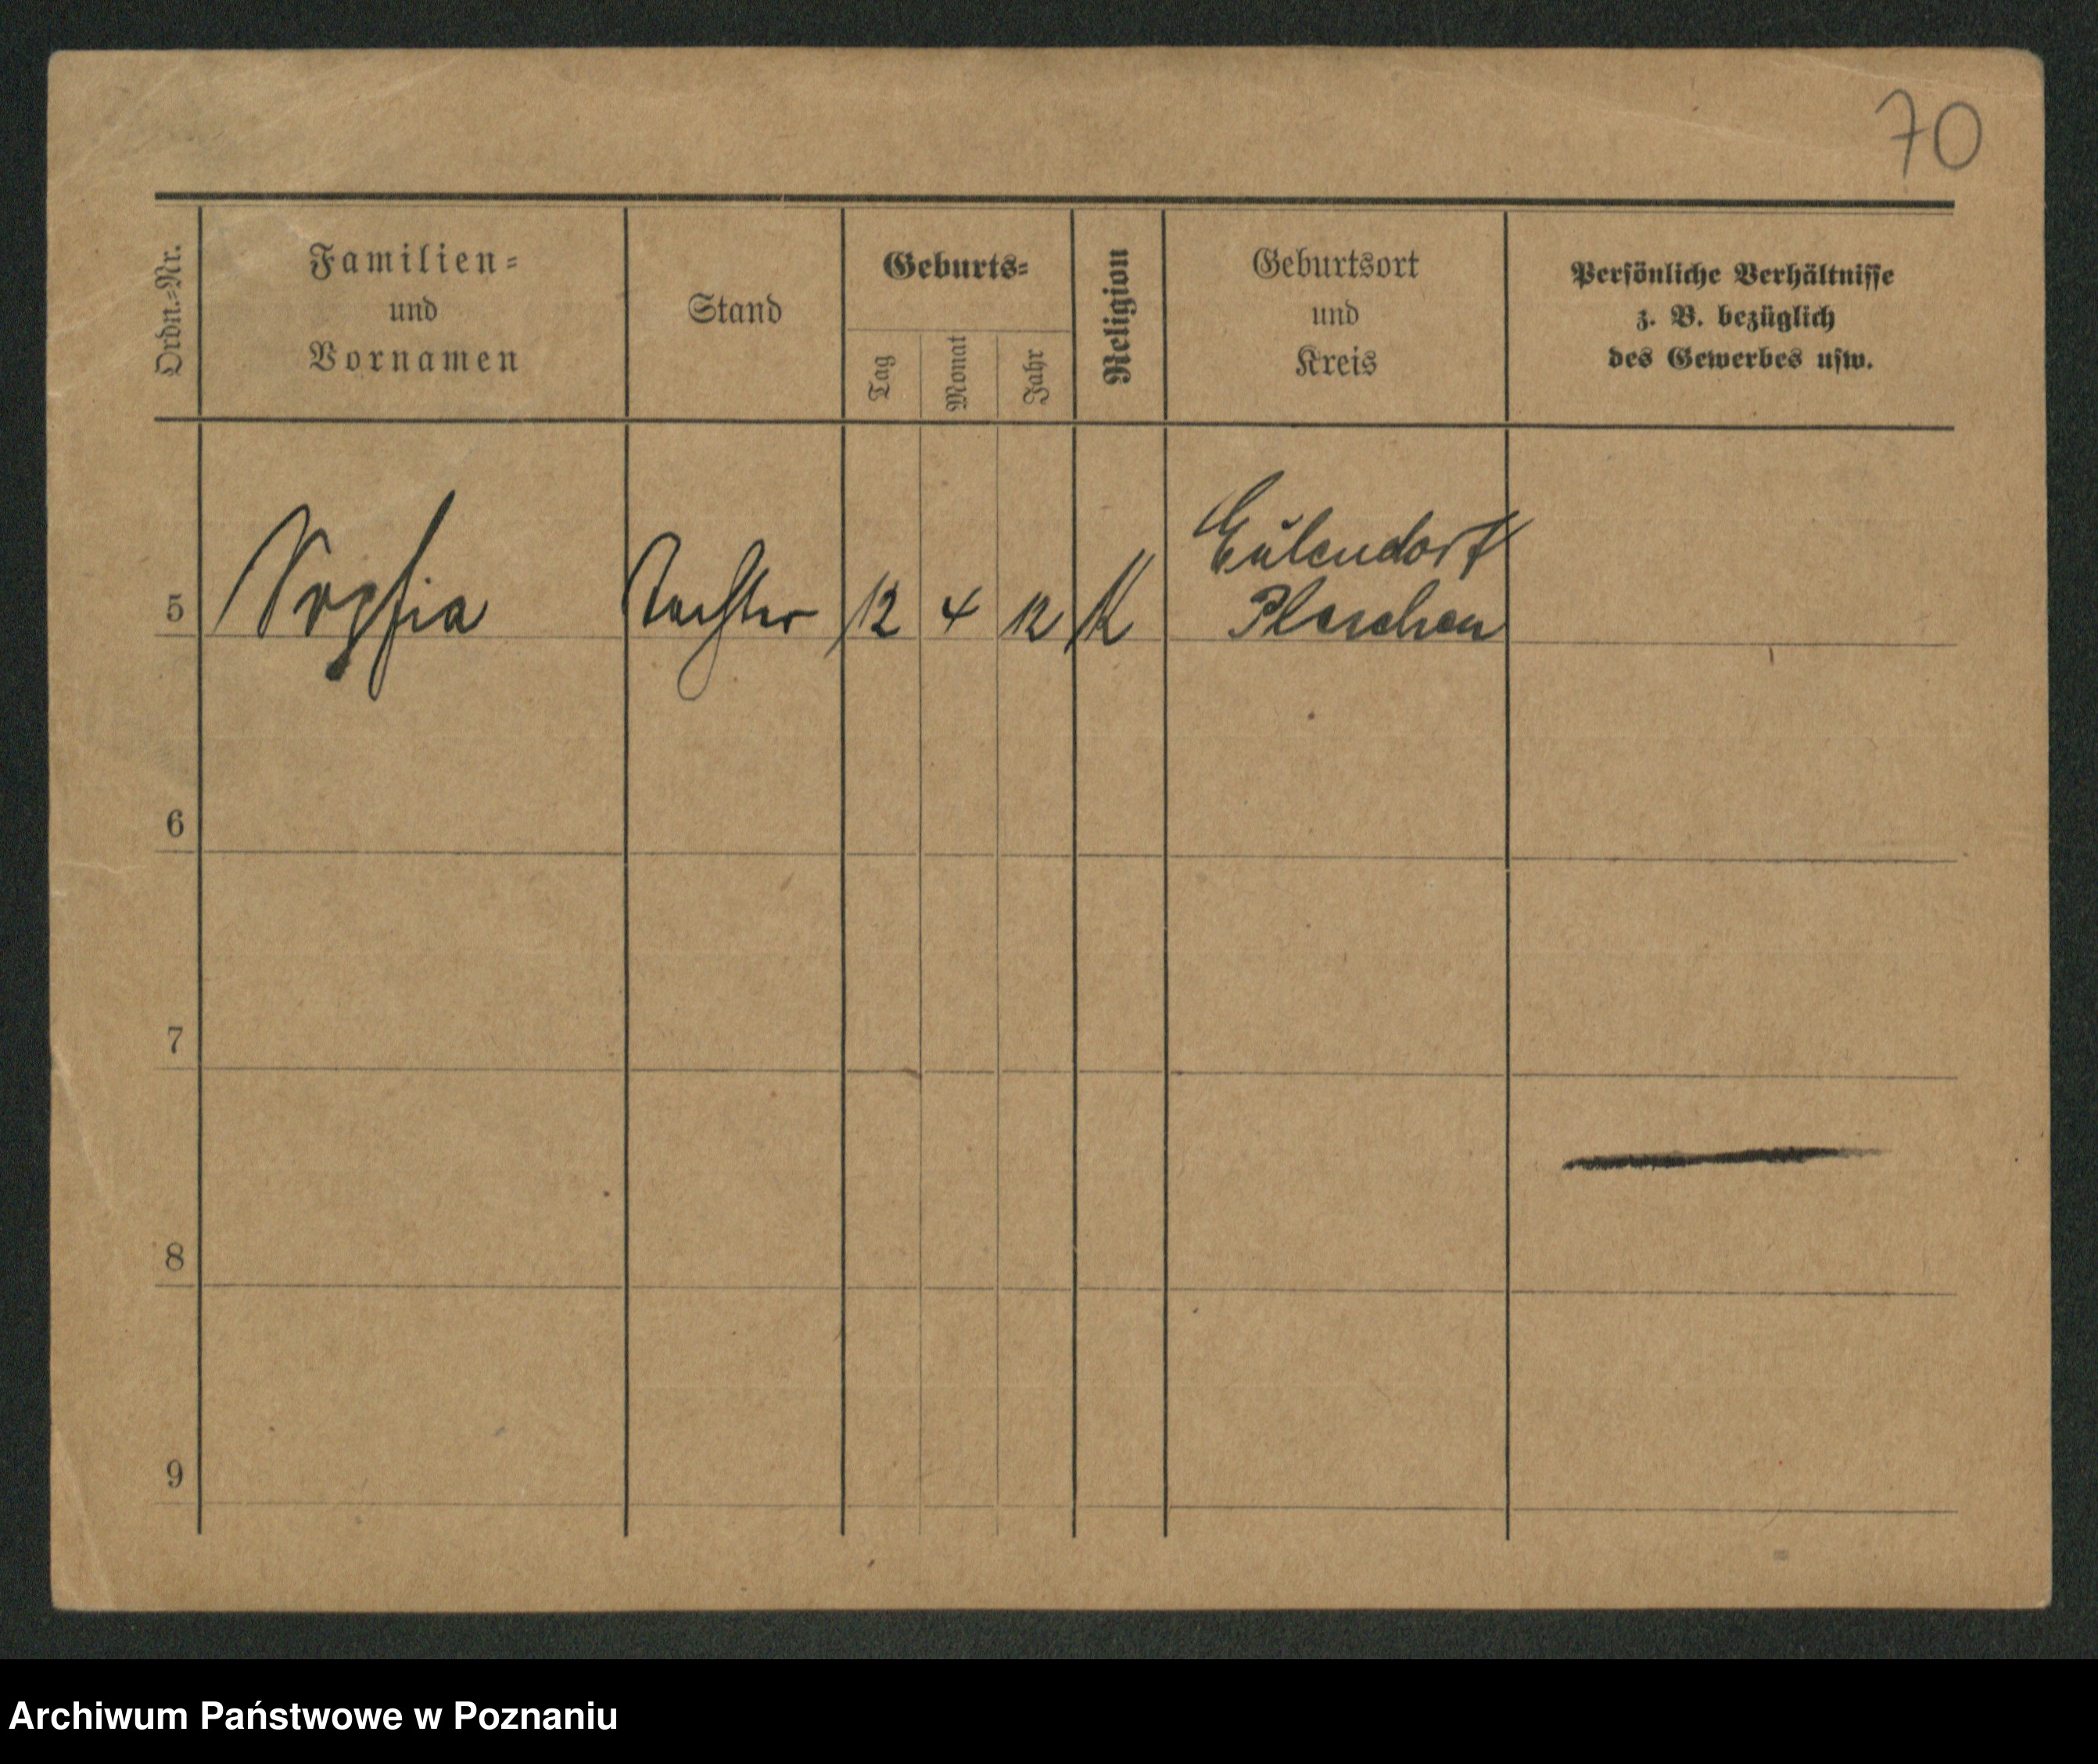 70
Ordn.-Nr.
Familien-
und
Vornamen
Stand
Geburts-
Tag
Monat
Jahr
Religion
Geburtsort
und
Kreis
Persönliche Verhältnisse
z. B. bezüglich
des Gewerbes usw.
Eulendorf
5 Sophia Tochter 12 4 12 K Pleschen
6
7
8
9
Archiwum Państwowe w Poznaniu